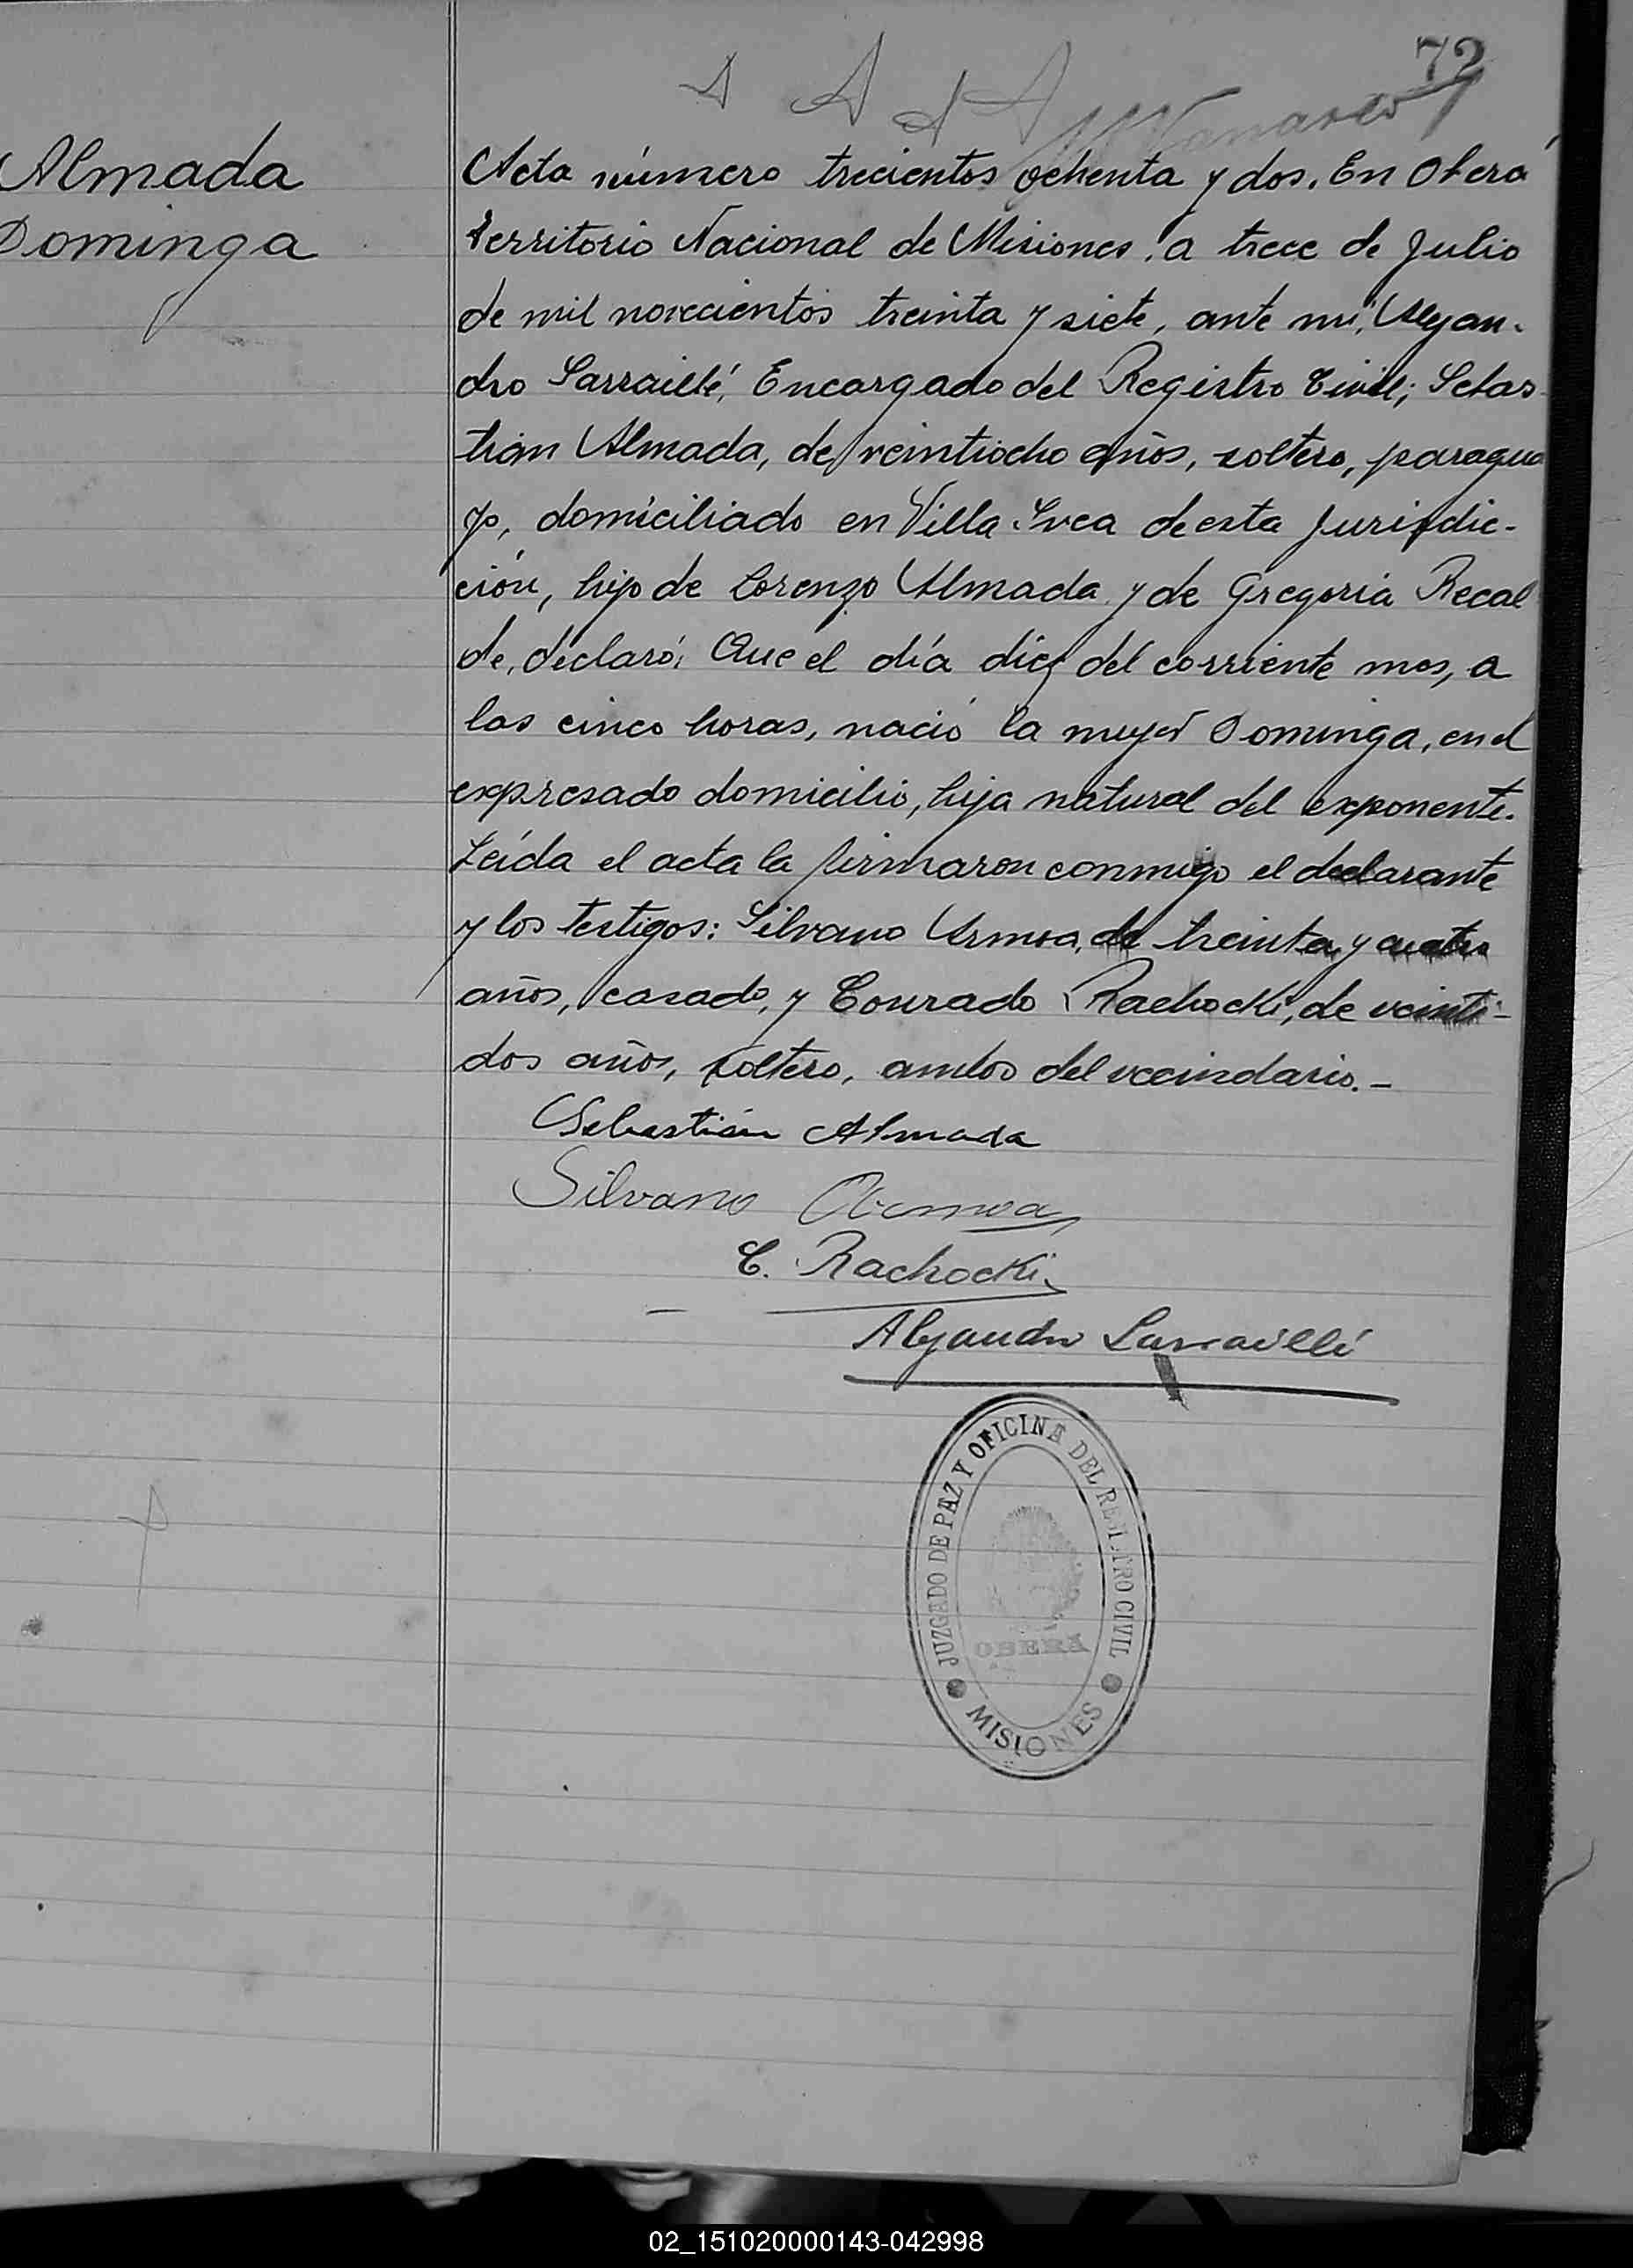 72
Almada
Dominga
Acta número trecientos ochenta y dos. En Oberá
Territorio Nacional de Misiones, a trece de Julio
de mil novecientos treinta y siete, ante mí, Alejan-
dro Larraillé, Encargado del Registro Civil; Sebas-
tián Almada, de veintiocho años, soltero, paragua
yo, domiciliado en Villa Svea de esta Jurisdic-
ción, hijo de Lorenzo Almada y de Gregoria Recal
de, declaró: Que el día diez del corriente mes, a
las cinco horas, nació la mujer Dominga, en el
expresado domicilio, hija natural del exponente.
Leída el acta la firmaron conmigo el declarante
y los testigos: Silvano Armoa, de treinta y cuatro
años, casado, y Conrado Rachocki, de veinti-
dos años, soltero, ambos del vecindario.-
Sebastián Almada
Silvano Armoa
C. Rachocki
Alejandro Larraillé
JUZGADO DE PAZ Y OFICINA DEL REGISTRO CIVIL
OBERA
MISIONES
02_151020000143-042998